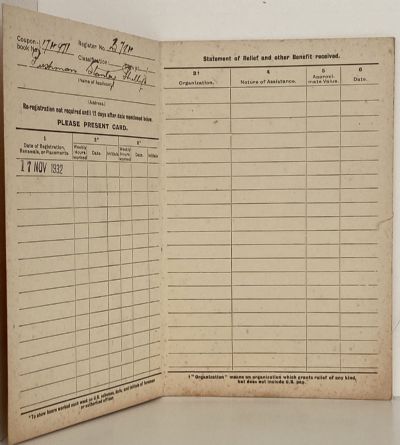 Coupon-book No. 17H971 Register No. 2704
Classification
Stanley
(Name of Applicant)
(Address.)
Re-registration not required until 12 days after date mentioned below.
PLEASE PRESENT CARD.
1 2* 2*
Date of Registration, Renewals, or Placements Weekly Hours Worked Date. Initials Weekly Hours Worked Date. Initials
17 NOV 1932
*To show hours worked each week on U.B. schemes, date, and initials of foreman or authorized officer.
Statement of Relief and other Benefit received.
3† 4 5 6
Organization. Nature of Assistance. Approximate Value. Date.
† "Organization" means an organization which grants relief of any kind,
but does not include U.B. pay.